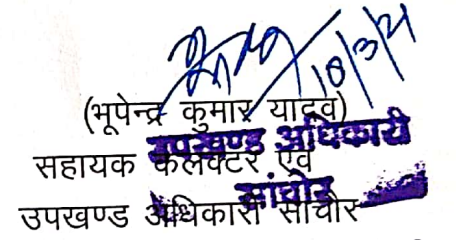 18/3/21
(भूपेन्द्र कुमार यादव)
उपखण्ड अधिकारी
सहायक कलेक्टर एवं
सांचोर
उपखण्ड अधिकारी सांचौर